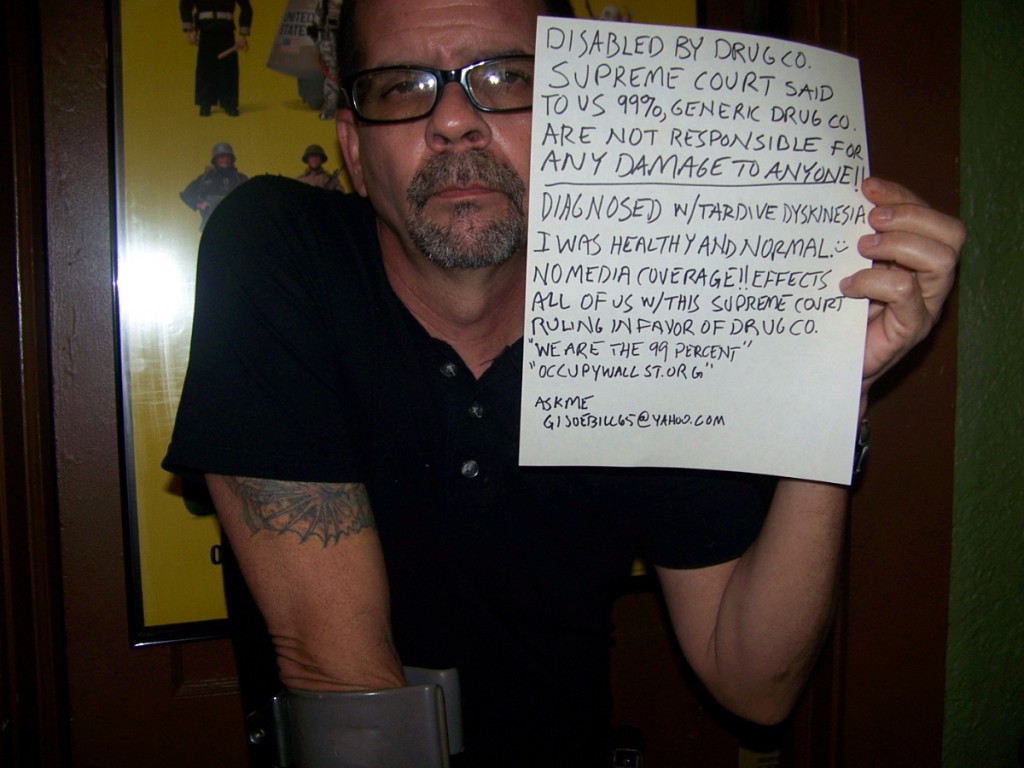 UNITED
STATE
DISABLED BY DRUG CO.
SUPREME COURT SAID
TO US 99%, GENERIC DRUG CO.
ARE NOT RESPONSIBLE FOR
ANY DAMAGE TO ANYONE!!
DIAGNOSED W/TARDIVE DYSKINESIA
I WAS HEALTHY AND NORMAL.
NO MEDIA COVERAGE!! EFFECTS
ALL OF US W/THIS SUPREME COURT
RULING IN FAVOR OF DRUG CO.
"WE ARE THE 99 PERCENT"
"OCCUPYWALLST.ORG"
ASK ME
GIJOEBILL65@YAHOO.COM